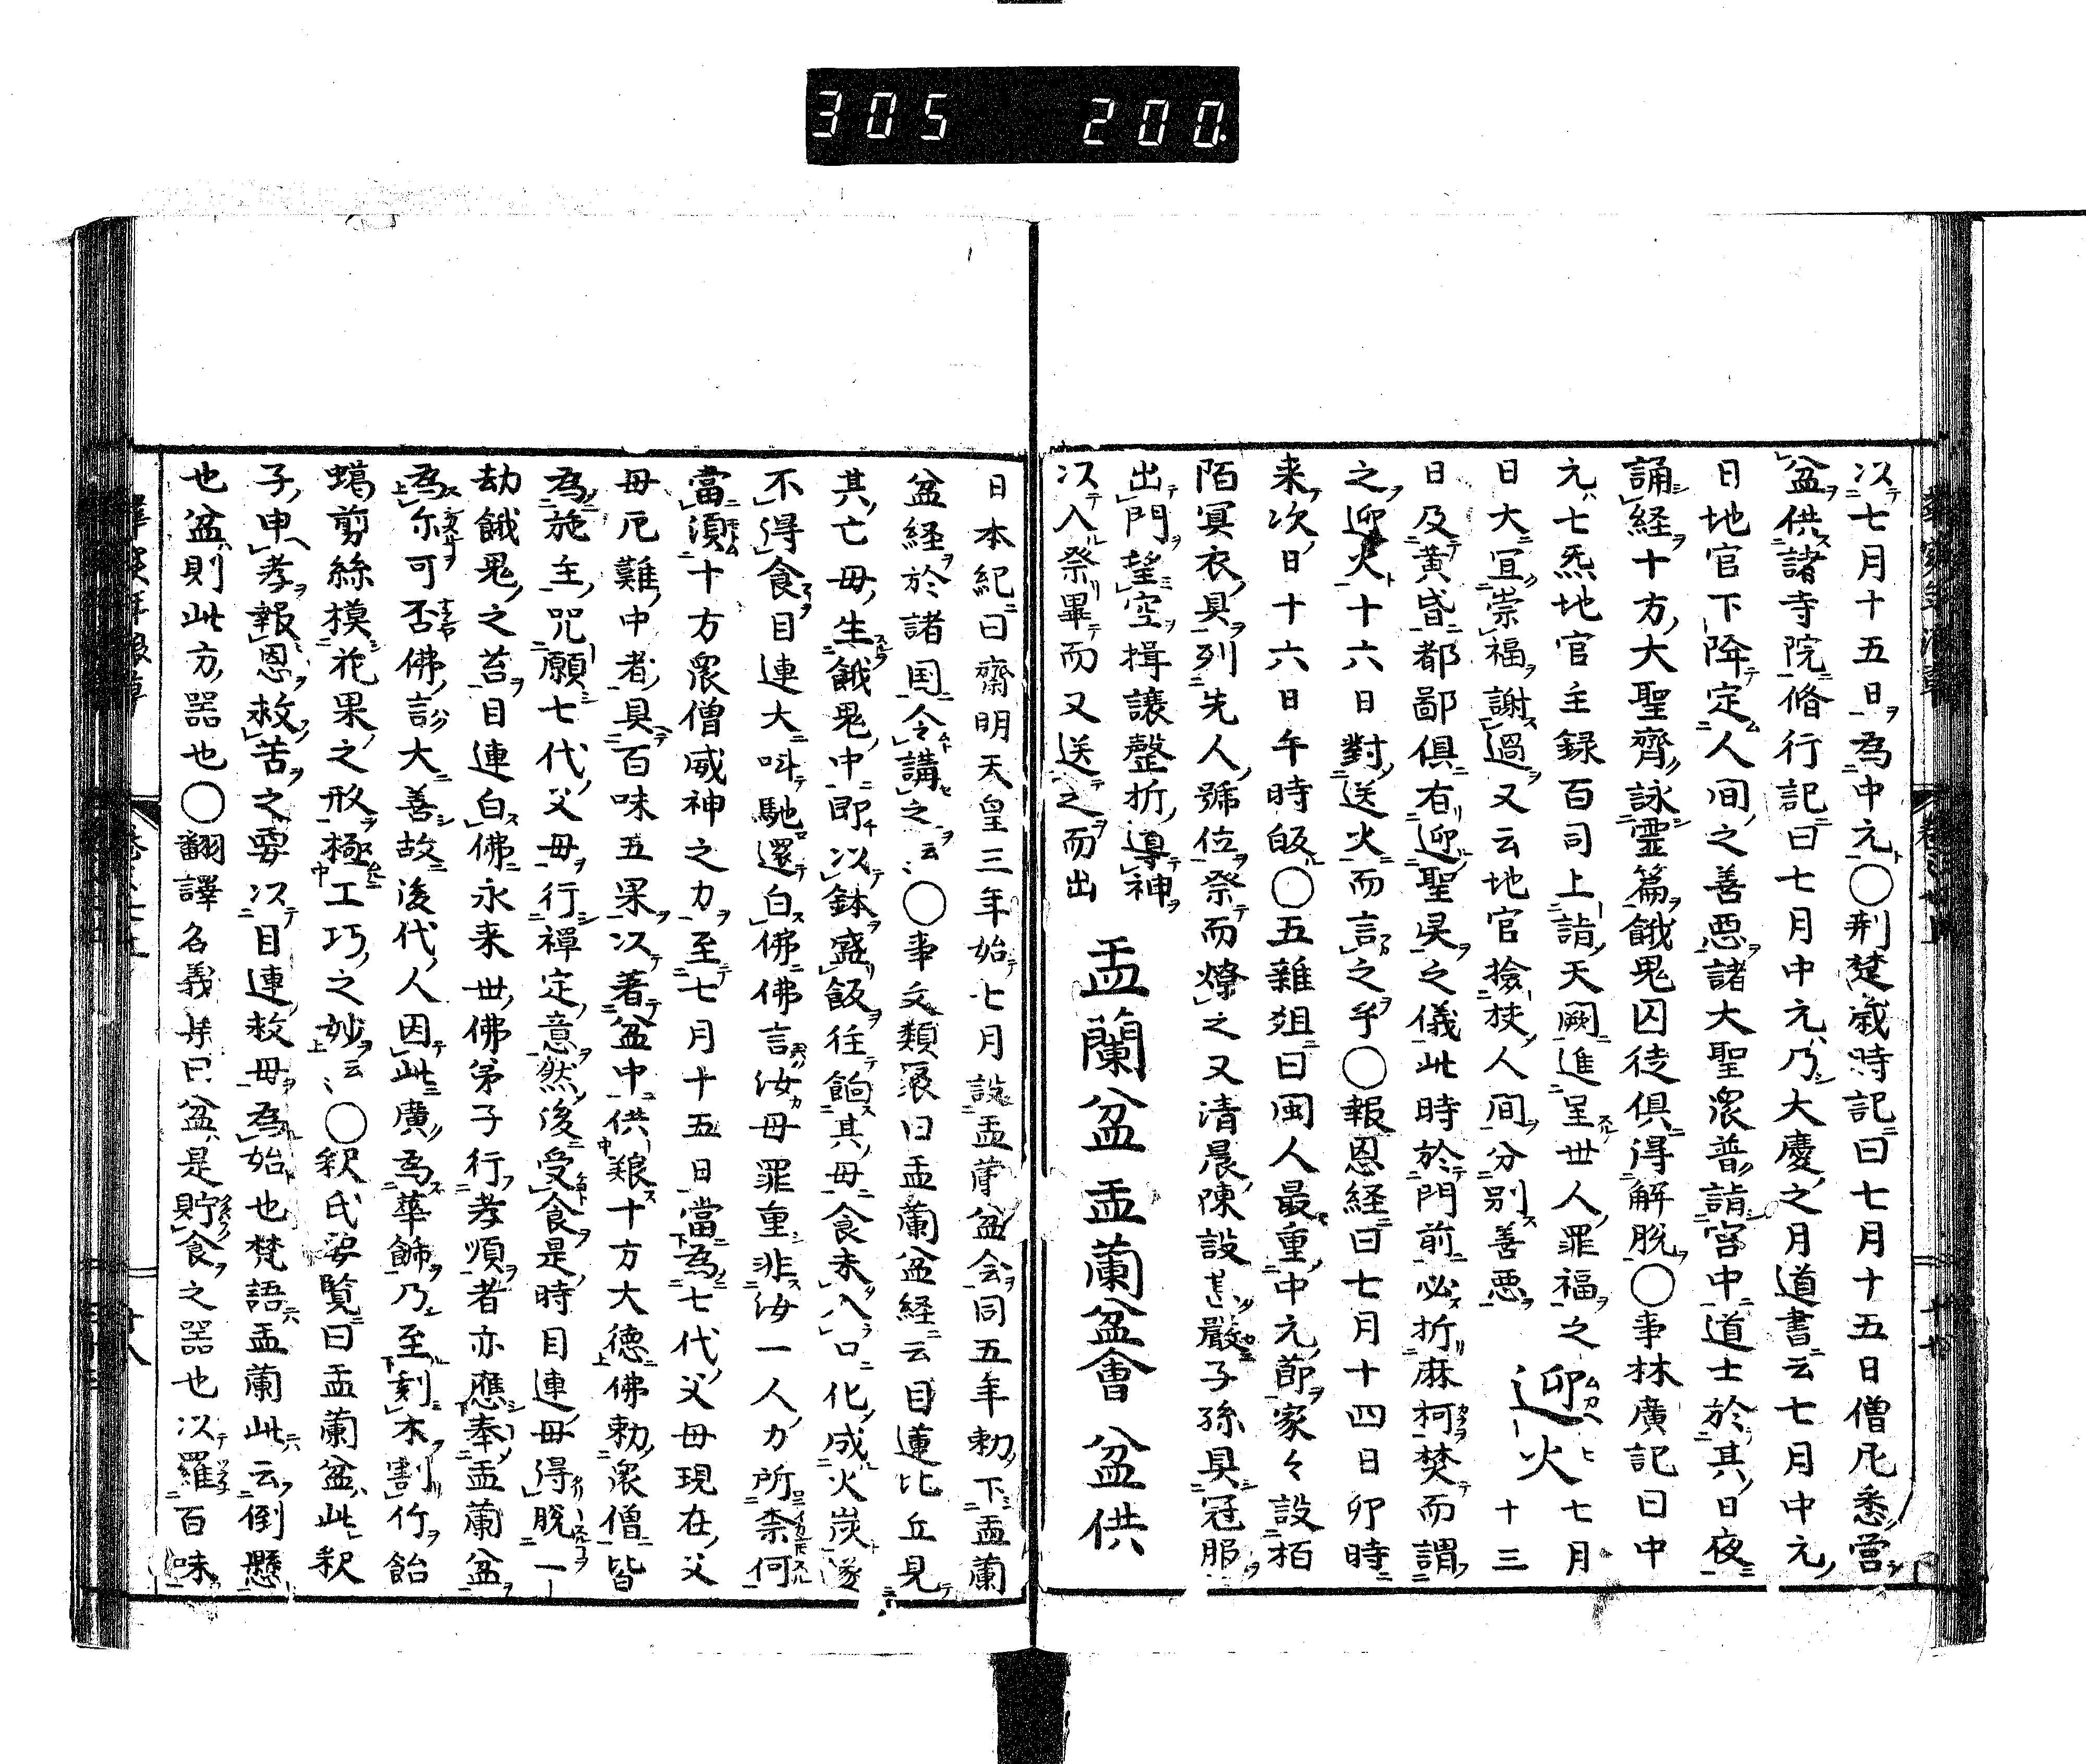 305 200.
以七月十五日為中元○荆楚歳時記曰七月十五日僧尼悉営
盆供諸寺院脩行記曰七月中元乃大慶之月道書云七月中元
日地官下降定人间之善悪諸大聖衆普詣宮中道士於其日夜
誦経十方大聖齊詠霊篇餓鬼囚徒俱得解脱○事林廣記曰中
元七炁地官主録百司上詣天闕進呈世人罪福之
迎火
七月十三
日大宜崇福謝過又云地官撿校人间分别善悪
日及黄昏都鄙俱有迎聖㚑之儀此時於門前必折麻柯焚而謂
之迎火十六日對送火而言之乎○報恩経曰七月十四日卯時
来次日十六日午時皈○五雜爼曰閩人最重中元節家々設栢
陌冥衣具列先人號位祭而燎之又清晨陳設甚嚴子孫具冠服
出門望空揖讓罄折導神
以入祭畢而又送之而出
盂蘭盆 盂蘭盆會 盆供
日本紀曰齋明天皇三年始七月設盂蘭盆会同五年勅下盂蘭
盆経於諸国令講之云〻○事文類聚曰盂蘭盆経云目蓮比丘見
其亡母生餓鬼中即以鉢盛飯往餉其母食未入口化成火炭遂
不得食目連大叫馳還白佛佛言汝母罪重非汝一人力所柰何
當須十方衆僧威神之力至七月十五日當為七代父母現在父
母厄難中者具百味五果以著盆中供粮十方大徳佛勅衆僧皆
為施主咒願七代父母行禅定意然後受食是時目連母得脱一
劫餓鬼之苦目連白佛永来世佛弟子行孝順者亦應奉盂蘭盆
為尓可否佛言大善故後代人因此廣為華餝乃至刻木割竹飴
蠟剪絲摸花果之形極工巧之妙云〻○釈氏要覧曰盂蘭盆此釈
子申孝報恩救苦之要以目連救母為始也梵語盂蘭此云倒懸
也盆則此方器也○翻譯名義集曰盆是貯食之器也以羅百味